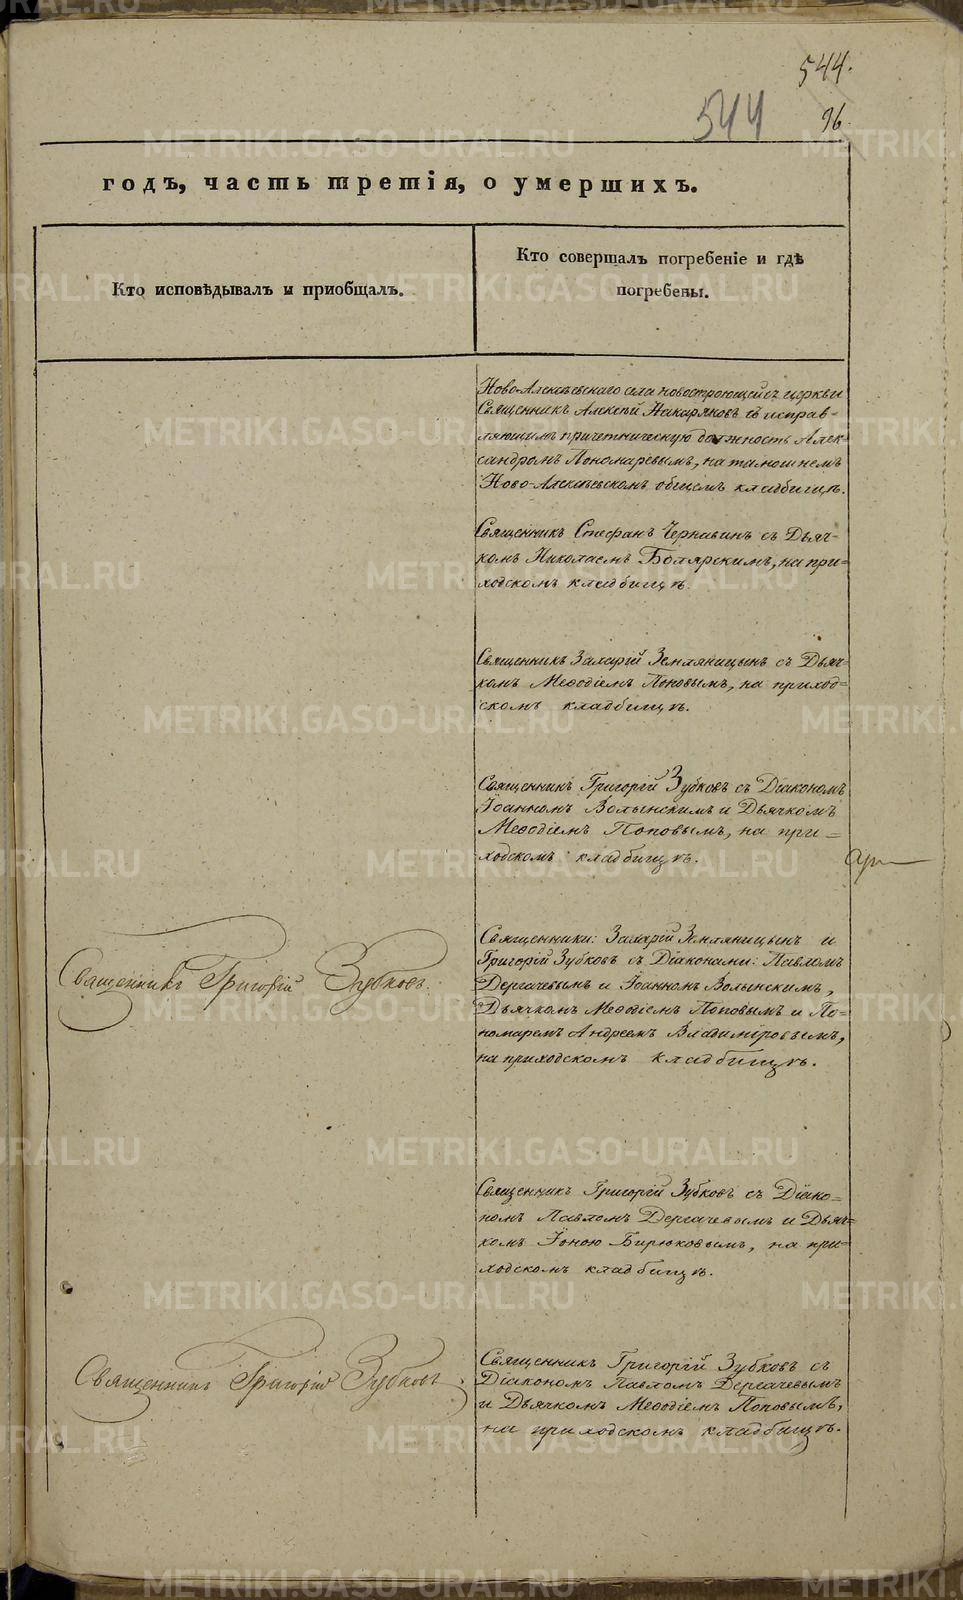 544.
544
96.
годъ, часть третія, о умершихъ.
Кто исповѣдывалъ и пріобщалъ.
Кто совершалъ погребеніе и гдѣ
погребены.
Ново-Алексѣевскаго села новостроющейся церкви
Священникъ Алексѣй Накаряковъ съ исправ-
ляющимъ причетническую должность Алек-
сандромъ Пономаревымъ, на тамошнемъ
Ново-Алексѣевскомъ общемъ кладбищѣ.
Священникъ Стефанъ Чернавинъ съ Дьяч-
комъ Николаемъ Боярскимъ, на при-
ходскомъ кладбищѣ.
Священникъ Захарій Земляницынъ съ Дьяч-
комъ Меѳодіемъ Поповымъ, на приход-
скомъ кладбищѣ.
Священникъ Григорій Зубковъ съ Діакономъ
Іоанномъ Волынскимъ и Дьячкомъ
Меѳодіемъ Поповымъ, на при-
ходскомъ кладбищѣ.
Священникъ Григорій Зубковъ.
Священники: Захарій Земляницынъ и
Григорій Зубковъ съ Діаконами: Павломъ
Дергачевымъ и Іоанномъ Волынскимъ,
Дьячкомъ Меѳодіемъ Поповымъ и По-
номаремъ Андреемъ Владиміровымъ,
на приходскомъ кладбищѣ.
Священникъ Григорій Зубковъ съ Діако-
номъ Павломъ Дергачевымъ и Дьяч-
комъ Іоною Бирюковымъ, на при-
ходскомъ кладбищѣ.
Священникъ Григорій Зубковъ
Священникъ Григорій Зубковъ съ
Діакономъ Павломъ Дергачевымъ
и Дьячкомъ Меѳодіемъ Поповымъ,
на приходскомъ кладбищѣ.
METRIKI.GASO-URAL.RU